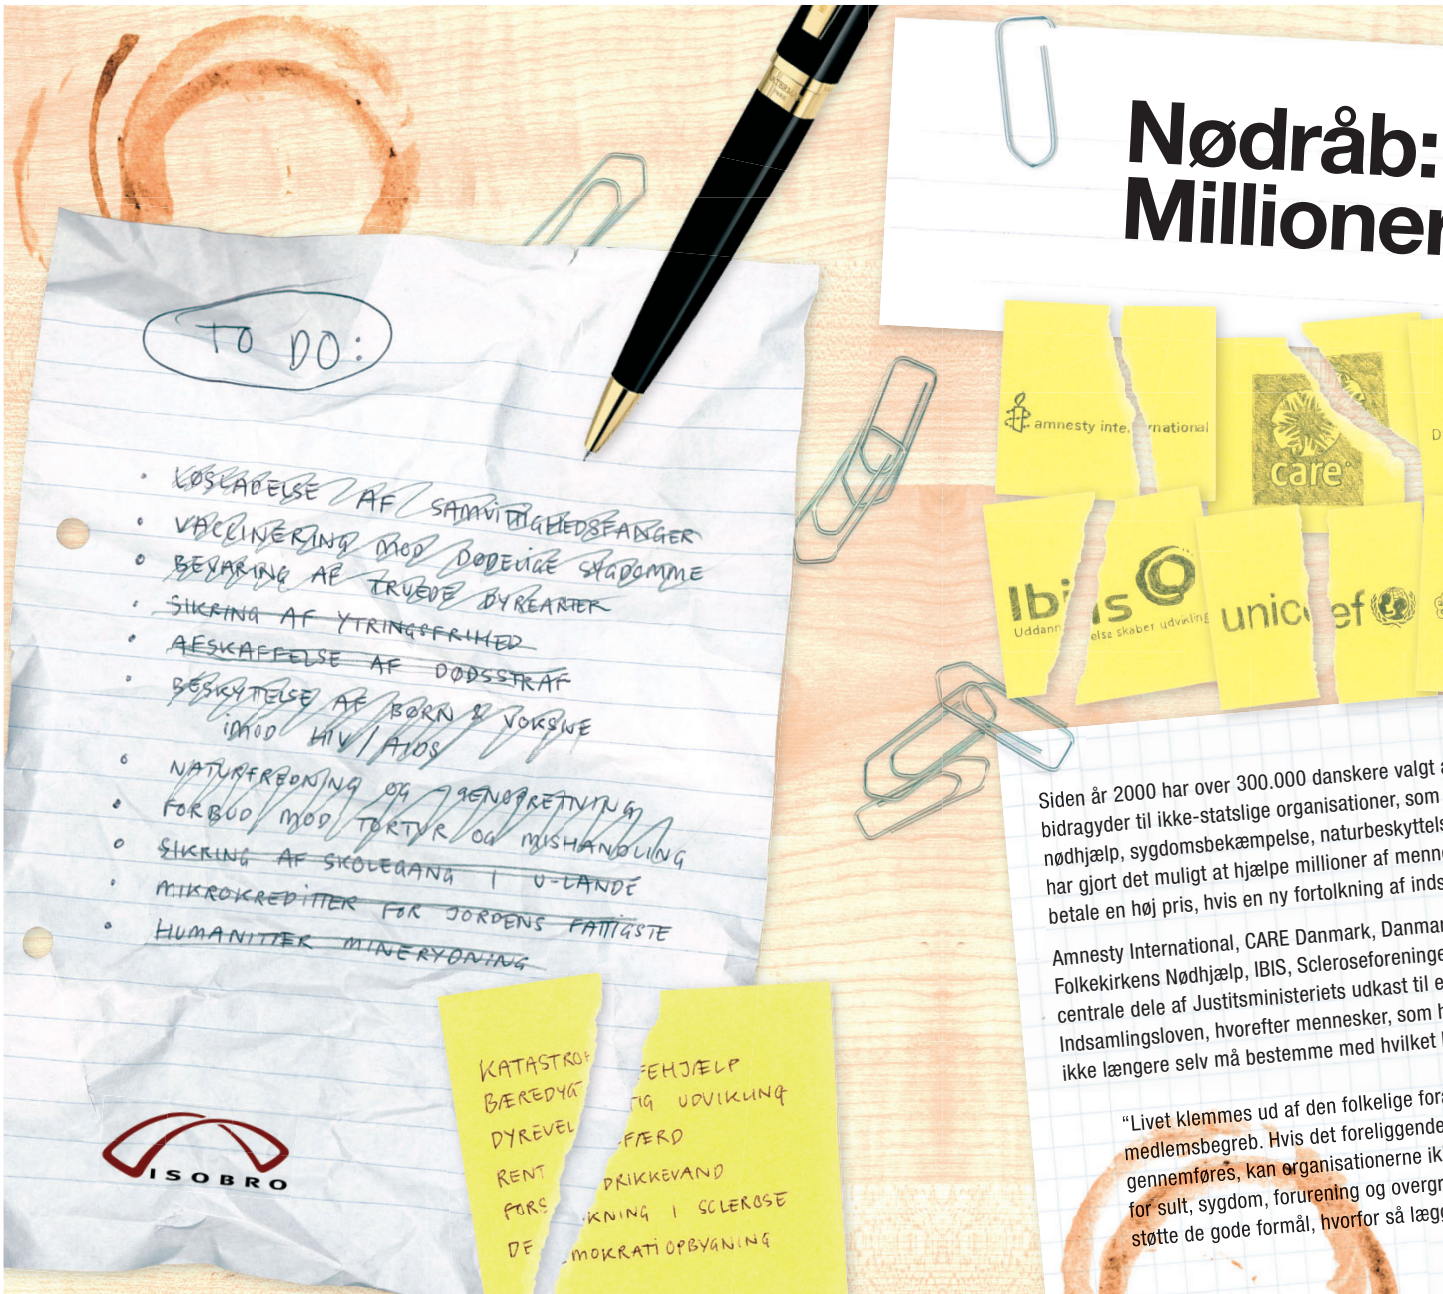 TO DO:
LØSLADELSE AF SAMVITTIGHEDSFANGER
VACCINERING MOD DØDELIGE SYGDOMME
BEVARING AF TRUEDE DYREARTER
SIKRING AF YTRINGSFRIHED
AFSKAFFELSE AF DØDSSTRAF
BESKYTTELSE AF BØRN & VOKSNE
IMOD HIV / AIDS
NATURFREDNING OG GENOPRETNING
FORBUD MOD TORTUR OG MISHANDLING
SIKRING AF SKOLEGANG I U-LANDE
MIKROKREDITTER FOR JORDENS FATTIGSTE
HUMANITÆR MINERYDNING
ISOBRO
KATASTROFEHJÆLP
BÆREDYGTIG UDVIKLING
DYREVELFÆRD
RENT DRIKKEVAND
FORSKNING I SCLEROSE
DEMOKRATIOPBYGNING
Nødråb:
Millioner
amnesty international
care
D
Ibis
Uddannelse skaber udvikling
unicef
Siden år 2000 har over 300.000 danskere valgt a
bidragyder til ikke-statslige organisationer, som
nødhjælp, sygdomsbekæmpelse, naturbeskyttels
har gjort det muligt at hjælpe millioner af menne
betale en høj pris, hvis en ny fortolkning af inds
Amnesty International, CARE Danmark, Danmar
Folkekirkens Nødhjælp, IBIS, Scleroseforeninge
centrale dele af Justitsministeriets udkast til e
Indsamlingsloven, hvorefter mennesker, som h
ikke længere selv må bestemme med hvilket
"Livet klemmes ud af den folkelige fora
medlemsbegreb. Hvis det foreliggende
gennemføres, kan organisationerne ik
for sult, sygdom, forurening og overgr
støtte de gode formål, hvorfor så lægg